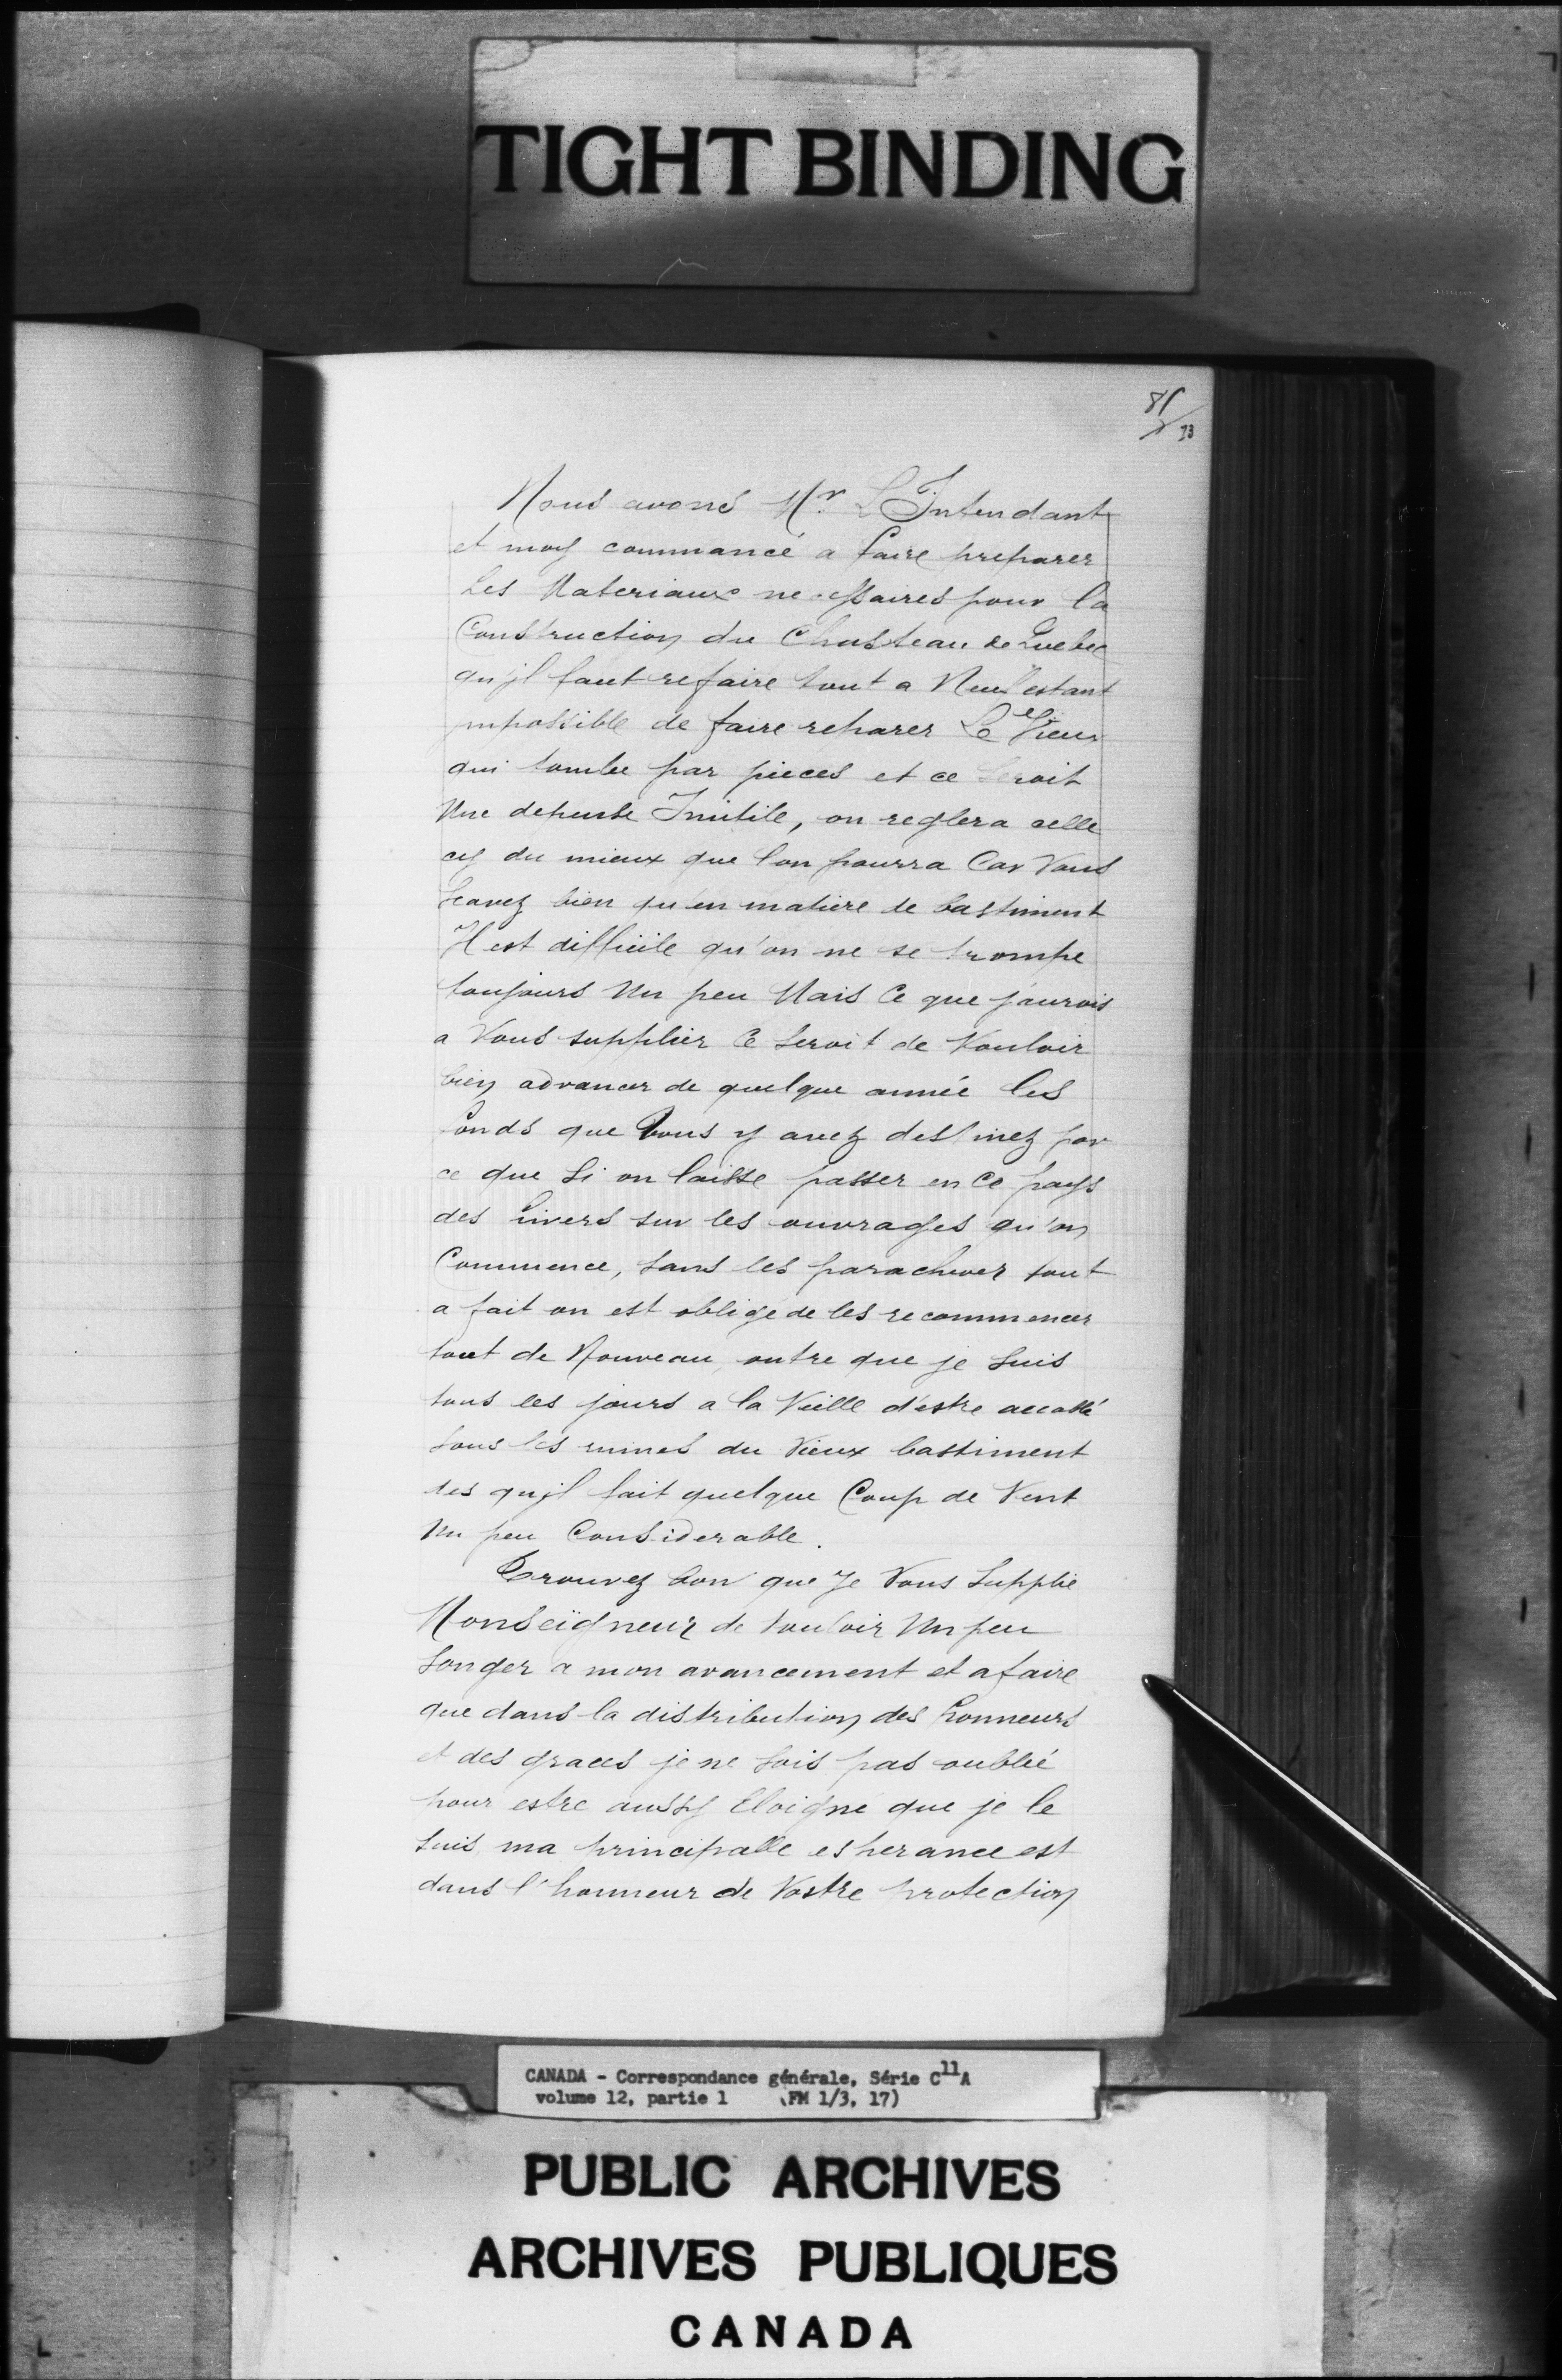 TIGHT BINDING
81
73
Nous avons Mr. L Intendant
et moy commancé a faire preparer
Les Materiaux necessaires pour la
Construction du Chasteau de Quebec
qu'jl faut refaire tout a Neuf estant
jmpossible de faire reparer Le Vieux
qui tombe par pieces et ce seroit
Une depense Inutile, on reglera celle
cy du mieux que l'on pourra Car Vous
scavez bien qu'en matiere de bastiment
Il est difficile qu'on ne se trompe
toujours Un peu Mais Ce que j'aurois
a Vous supplier Ce seroit de Vouloir
bien advancer de quelque année les
fonds que Vous y avez destinez par
ce que si on laisse passer en Ce pays
des hivers sur les ouvrages qu'on
Commence, sans les parachever tout
a fait on est obligé de les recommencer
tout de Nouveau, outre que je suis
tous les jours a la Veille d'estre accablé
sous les ruines du Vieux bastiment
des qu'jl fait quelque Coup de Vent
Un peu Considerable.
Trouvez bon que Je Vous supplie
Monseigneur de Vouloir Un peu
songer a mon avancement et a faire
que dans la distribution des honneurs
et des graces je ne sois pas oublié
pour estre aussy Eloigné que je le
suis, ma principalle esperance est
dans l'honneur de Vostre protection
CANADA - Correspondance générale, Série C11A
volume 12, partie 1 (FM 1/3, 17)
PUBLIC ARCHIVES
ARCHIVES PUBLIQUES
CANADA
L